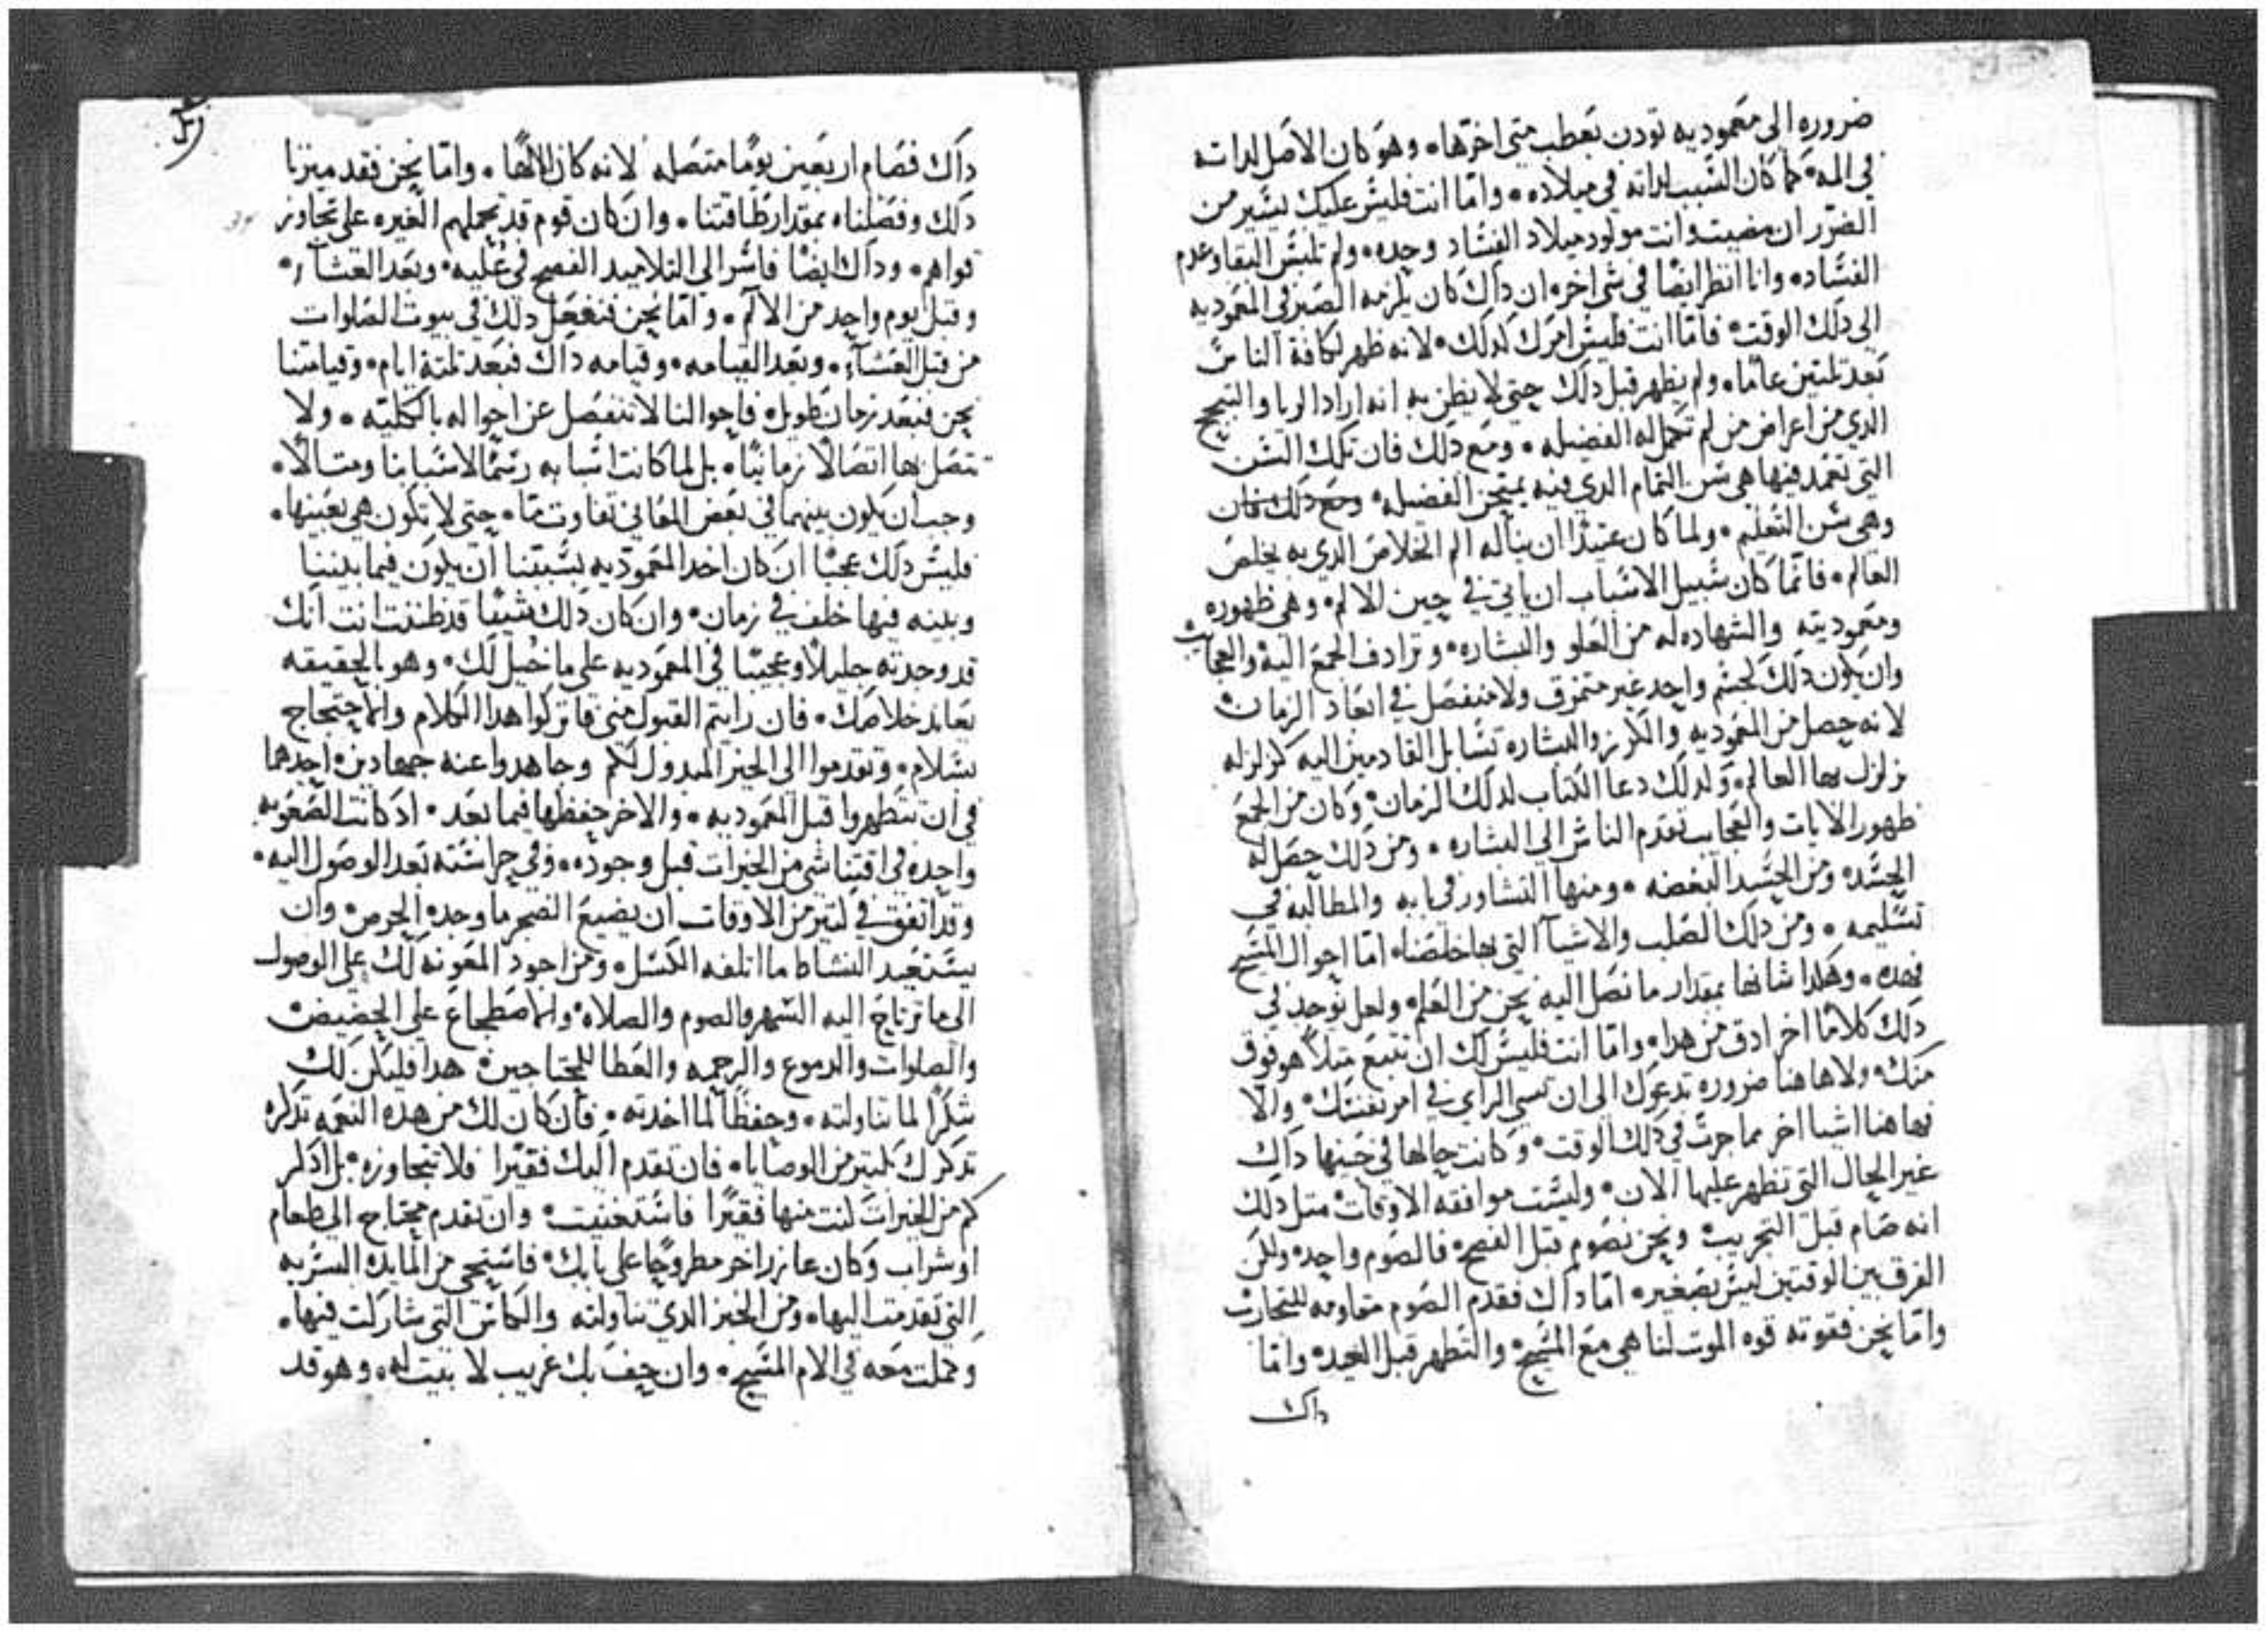 ضروره الى معموديه تودن بعطب متى اخرها٠ وهو كان الاصل لداته
في المه٠ كما كان السبب لداته في ميلاده٠ واما انت فليس عليك ليسير من
الضرر ان مضيت وانت مولود ميلاد الفساد وحده٠ ولم تلبس البقا وعدم
الفساد٠ وانا انظر ايضا في شي اخر٠ ان داك كان يلزمه الصبر في المعموديه
الى دلك الوقت٠ فاما انت فليس امرك كدلك٠ لانه ظهر لكافة الناس
بعد تلتين عاما٠ ولم يظهر قبل دلك حتى لا يظن به انه اراد الريا والتبجح
الدي من اعراض من لم تكمل له الفضيله٠ ومع دلك فان تلك السن
التي تعمد فيها هي سن التمام الدي فيه يمتحن الفضيله٠ ومع دلك فان
وهي سن التعليم٠ ولما كان عتيدا ان يناله الم الخلاص الدي به يخلص
العالم٠ فانما كان سبيل الاسباب ان ياتي في حين الالم٠ وهي ظهوره
ومعموديته والشهاده له من العلو والبشاره٠ وترادف الجمع اليه والعجايب
وان يكون دلك كجسم واحد غير متمزق ولا منفصل في ابعاد الزمان
لانه حصل من المعموديه والكرز والبشاره تسابل القادمين اليه كزلزله
تزلزل بها العالم٠ ولدلك دعا الكتاب لدلك الزمان٠ وكان من الجمع
ظهور الايات والعجايب تقدم الناس الى البشاره٠ ومن دلك حصل له
الحسد٠ ومن الحسد البغضه٠ ومنها التشاور في بابه والمطالبه في
تسليمه٠ ومن دلك الصلب والاشيآ التي بها خلصنا٠ اما احوال المسيح
فهده٠ وهكدا شانها بمقدار ما نصل اليه نحن من العلم٠ ولعل يوجد في
دلك كلاما اخر ادق من هدا٠ واما انت فليس لك ان تتبع مثلا هو فوق
منك٠ ولا هاهنا ضروره تدعوك الى ان تسي الراي في امر نفسك٠ والا
فهاهنا اشيا اخر مما جرت في دلك الوقت٠ وكانت حالها في حينها داك
غير الحال التي تظهر عليها الان٠ وليست موافقه الاوقات مثل دلك
انه صام قبل التجريب ونحن نصوم قبل الفصح٠ فالصوم واحد٠ ولكن
الفرق بين الوقتين ليس بصغير٠ اما داك فقدم الصوم مقاومه للتجارب
واما نحن فقوته قوه الموت لنا هي مع المسيح٠ والتطهر قبل العيد٠ واما
داك
داك فصام اربعين يوما متصله لانه كان الالها٠ واما نحن فقد ميزنا
دلك وفصلناه بمقدار طاقتنا٠ وان كان قوم قد تحملهم الغيره على تجاوز
قواهم٠ وداك ايضا فاسر الى التلاميد الفصح في عليه٠ وبعد العشآ٠
وقبل يوم واحد من الالم٠ واما نحن فنفعل دلك في بيوت الصلوات
من قبل العشآ٠ وبعد القيامه٠ وقيامه داك فبعد تلتة ايام٠ وقيامتنا
نحن فبعد زمان طويل٠ فاحوالنا لا تنفصل عن احواله بالكليه٠ ولا
تتصل بها اتصالا زمانيا٠ بل لما كانت اسبابه رسما لاسبابنا ومتالا٠
وجب ان يكون بينهما في بعض المعاني تفاوت ما٠ حتى لا تكون هي بعينها٠
فليس دلك عجبا ان كان اخد المعموديه بسببنا ان يكون فيما بيننا
وبينه فيها خلف في زمان٠ وان كان دلك شيئا قد ظننت انت انك
قد وجدته جليلا وعجيبا في المعموديه على ما خيل لك٠ وهو بالحقيقه
يعاند خلاصك٠ فان رايتم القبول مني فاتركوا هدا الكلام والاحتجاج
بسلام٠ وتقدموا الى الخير المبدول لكم وجاهدوا عنه جهادين٠ احدهما
في ان تتطهروا قبل المعموديه٠ والاخر حفظها فيما بعد٠ اد كانت الصعوبه
واحده في اقتنا شي من الخيرات قبل وجوده٠ وفي حراسته بعد الوصول اليه٠
وقد اتفق في كتير من الاوقات ان يضيع الضجر ما وجده الحرص٠ وان
يستعيد النشاط ما اتلفه الكسل٠ ومن اجود المعونه لك على الوصول
الى ما ترتاح اليه السهر والصوم والصلاه٠ والاضطجاع على الحضيض
والصلوات والدموع والرحمه والعطا للمحتاجين٠ هدا فليكن لك
شكرا لما تناولته٠ وحفظا لما اخدته٠ فان كان لك من هده النعمه تدكره
تدكرك بكتير من الوصايا٠ فان تقدم اليك فقيرا فلا تتجاوزه٠ بل ادكر
كم من الخيرات كنت منها فقيرا فاستغنيت٠ وان تقدم محتاج الى طعام
او شراب وكان عازر اخر مطروحا على بابك٠ فاستحي من المايده السريه
التي تقدمت اليها٠ ومن الخبز الدي تناولته والكاس التي شاركت فيها٠
وكملت معه في الام المسيح٠ وان حف بك غريب لا بيت له٠ وهو قد